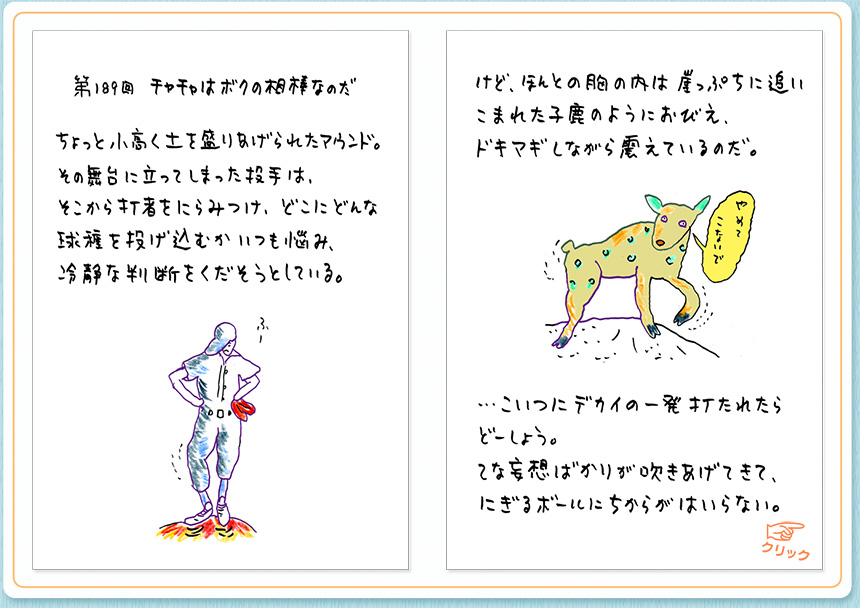 第189回 チャチャはボクの相棒なのだ
ちょっと小高く土を盛りあげられたマウンド。
その舞台に立ってしまった投手は、
そこから打者をにらみつけ、どこにどんな
球種を投げ込むかいつも悩み、
冷静な判断をくだそうとしている。
ふー
けど、ほんとの胸の内は崖っぷちに追い
こまれた子鹿のようにおびえ、
ドキマギしながら震えているのだ。
やめて
こないで
…こいつにデカイの一発打たれたら
どーしよう。
てな妄想ばかりが吹きあげてきて、
にぎるボールにちからがはいらない。
クリック